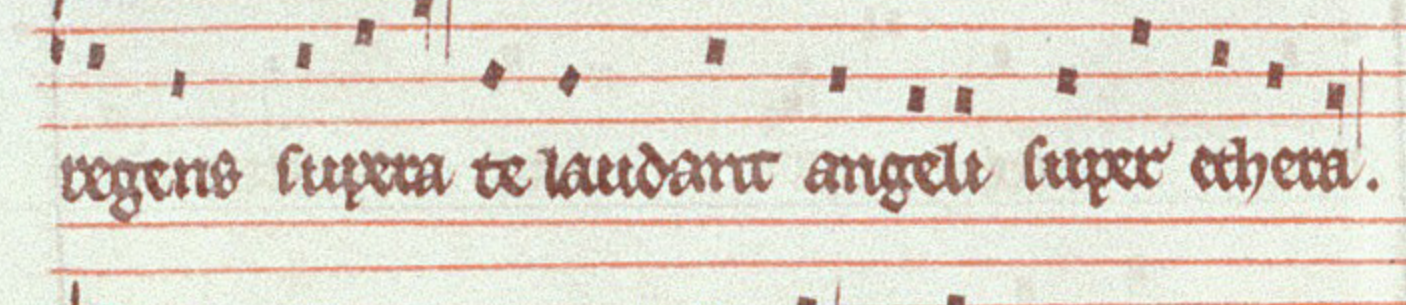 regens supera te laudant angeli super ethera.